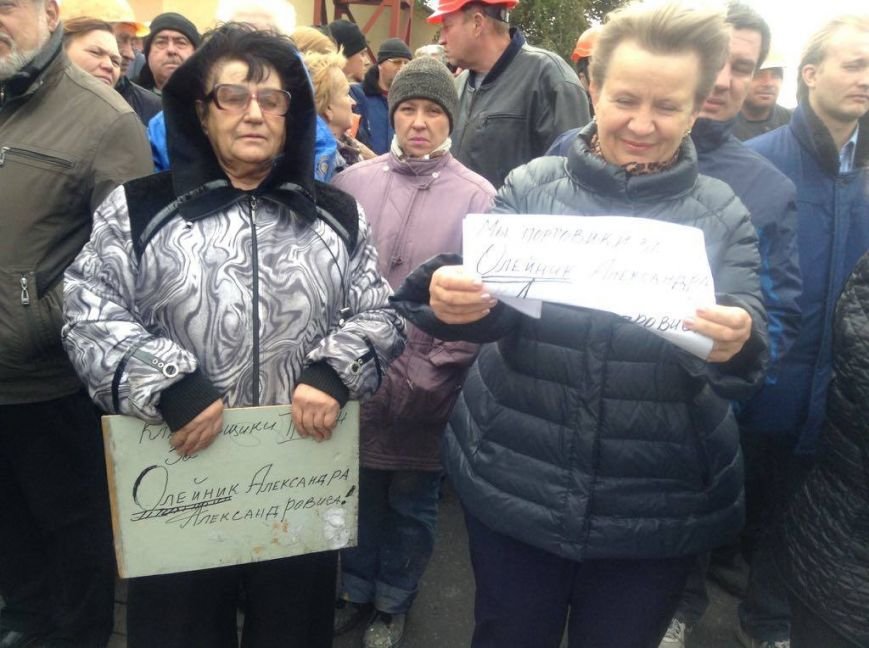 за
Олейник Александра
Александровича!
Мы портовики за
Олейник Александра